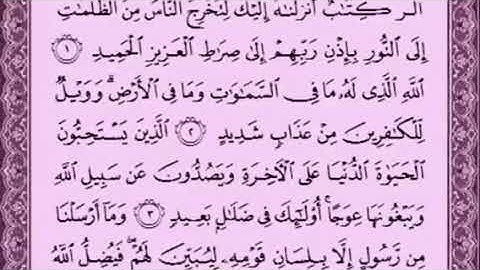 الٓر كِتَٰبٌ أَنزَلْنَٰهُ إِلَيْكَ لِتُخْرِجَ ٱلنَّاسَ مِنَ ٱلظُّلُمَٰتِ
إِلَى ٱلنُّورِ بِإِذْنِ رَبِّهِمْ إِلَىٰ صِرَٰطِ ٱلْعَزِيزِ ٱلْحَمِيدِ ١
ٱللَّهِ ٱلَّذِى لَهُۥ مَا فِى ٱلسَّمَٰوَٰتِ وَمَا فِى ٱلْأَرْضِ ۗ وَوَيْلٌ
لِّلْكَٰفِرِينَ مِنْ عَذَابٍ شَدِيدٍ ٢ ٱلَّذِينَ يَسْتَحِبُّونَ
ٱلْحَيَوٰةَ ٱلدُّنْيَا عَلَى ٱلْأَخِرَةِ وَيَصُدُّونَ عَن سَبِيلِ ٱللَّهِ
وَيَبْغُونَهَا عِوَجًا ۚ أُو۟لَٰٓئِكَ فِى ضَلَٰلٍۭ بَعِيدٍ ٣ وَمَآ أَرْسَلْنَا
مِن رَّسُولٍ إِلَّا بِلِسَانِ قَوْمِهِۦ لِيُبَيِّنَ لَهُمْ ۖ فَيُضِلُّ ٱللَّهُ